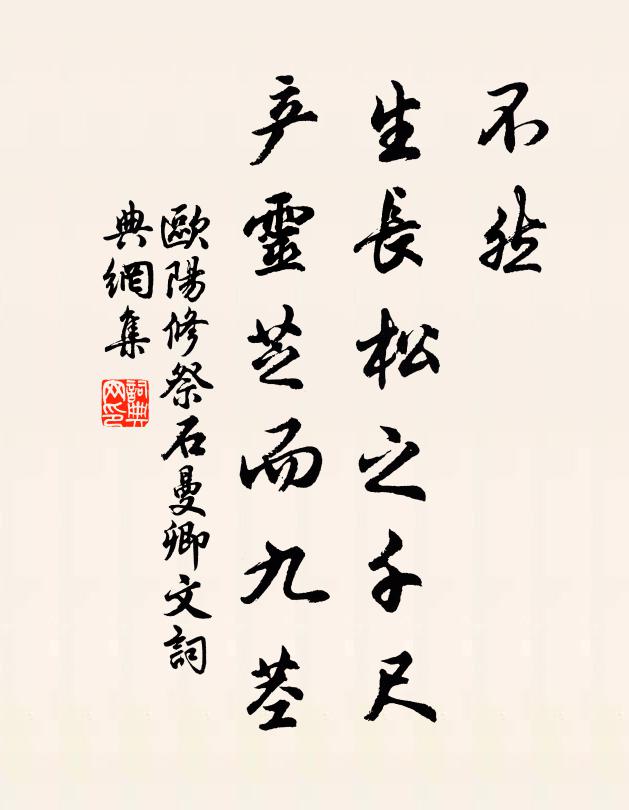 不然
生長松之千尺
产靈芝而九茎
歐陽修祭石曼卿文詞
典網集
詞典网印